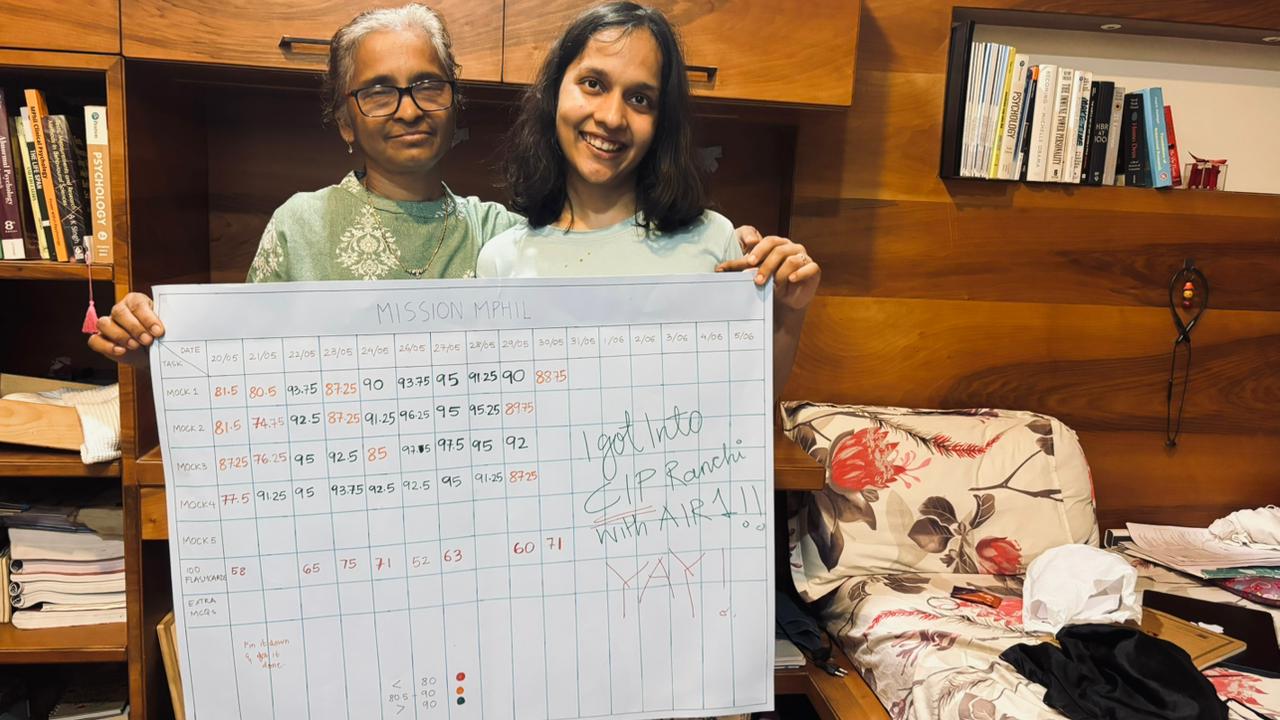 MISSION MPHIL
DATE
TASK
20/05 21/05 22/05 23/05 24/05 26/05 27/05 28/05 29/05 30/05 31/05 1/06 2/06 3/06 4/06 5/06
MOCK 1 81.5 80.5 93.75 87.25 90 93.75 95 91.25 90 88.75
MOCK 2 81.5 74.75 92.5 87.25 91.25 96.25 95 95.25 89.75
MOCK3 87.25 76.25 95 92.5 85 97.5 95 92
MOCK4 77.5 91.25 95 93.75 92.5 92.5 95 91.25 87.25
MOCK5
100 FLASHCARDS 58 65 75 71 52 63 60 71
EXTRA
MCQs
I got Into
CIP Ranchi
with AIR 1!!
YAY!
Pin it down
& get it
done.
< 80
80.5 - 90
> 90
Abnormal Psychology
THE LIFE SPAN
PSYCHOLOGY
8
PSYCHOLOGY
BECOMING MICHELLE OBAMA
THE INNER POWER PERSONALITY
HBR
AT
100